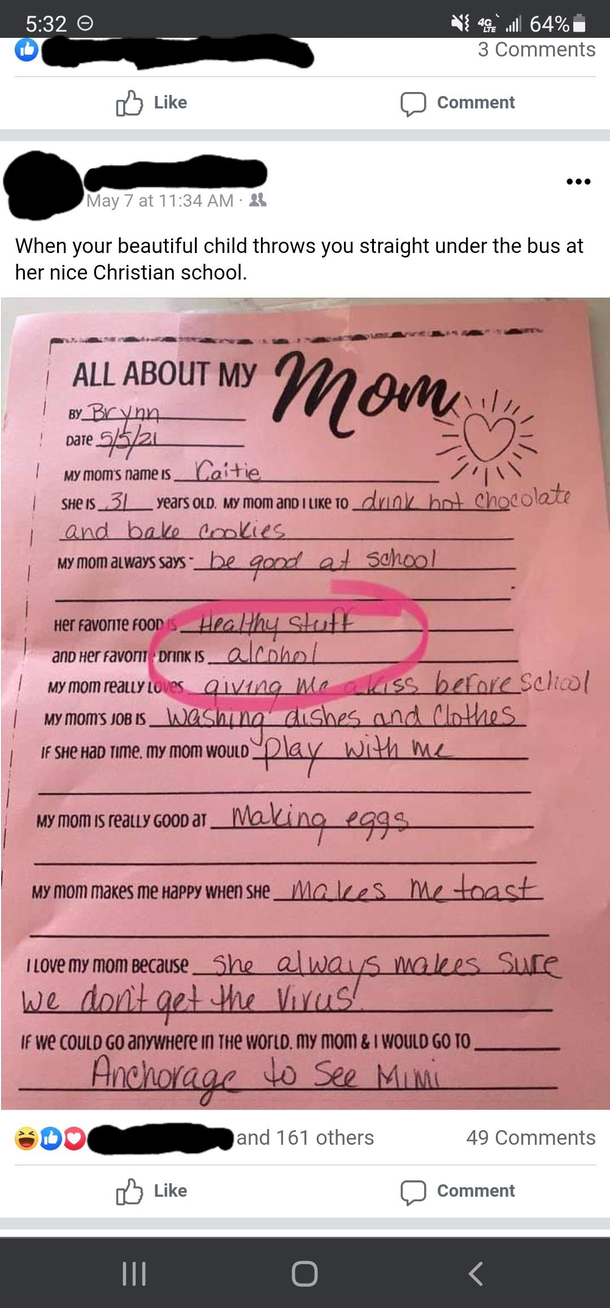 5:32 4G LTE 64%
3 Comments
Like Comment
May 7 at 11:34 AM ·
When your beautiful child throws you straight under the bus at
her nice Christian school.
ALL ABOUT MY Mom
BY Brynn
DATE 5/5/21
MY MOM'S NAME IS Kaitie
SHE IS 31 YEARS OLD. MY MOM AND I LIKE TO drink hot chocolate
and bake cookies
MY MOM ALWAYS SAYS - be good at school
HER FAVORITE FOOD IS Healthy Stuff
AND HER FAVORITE DRINK IS alcohol
MY MOM REALLY LOVES giving me a kiss before School
MY MOM'S JOB IS washing dishes and Clothes
IF SHE HAD TIME, MY MOM WOULD play with me
MY MOM IS REALLY GOOD AT Making eggs
MY MOM MAKES ME HAPPY WHEN SHE Makes me toast
I LOVE MY MOM BECAUSE She always makes Sure
we don't get the Virus!
IF WE COULD GO ANYWHERE IN THE WORLD, MY MOM & I WOULD GO TO
Anchorage to See Mimi
and 161 others 49 Comments
Like Comment